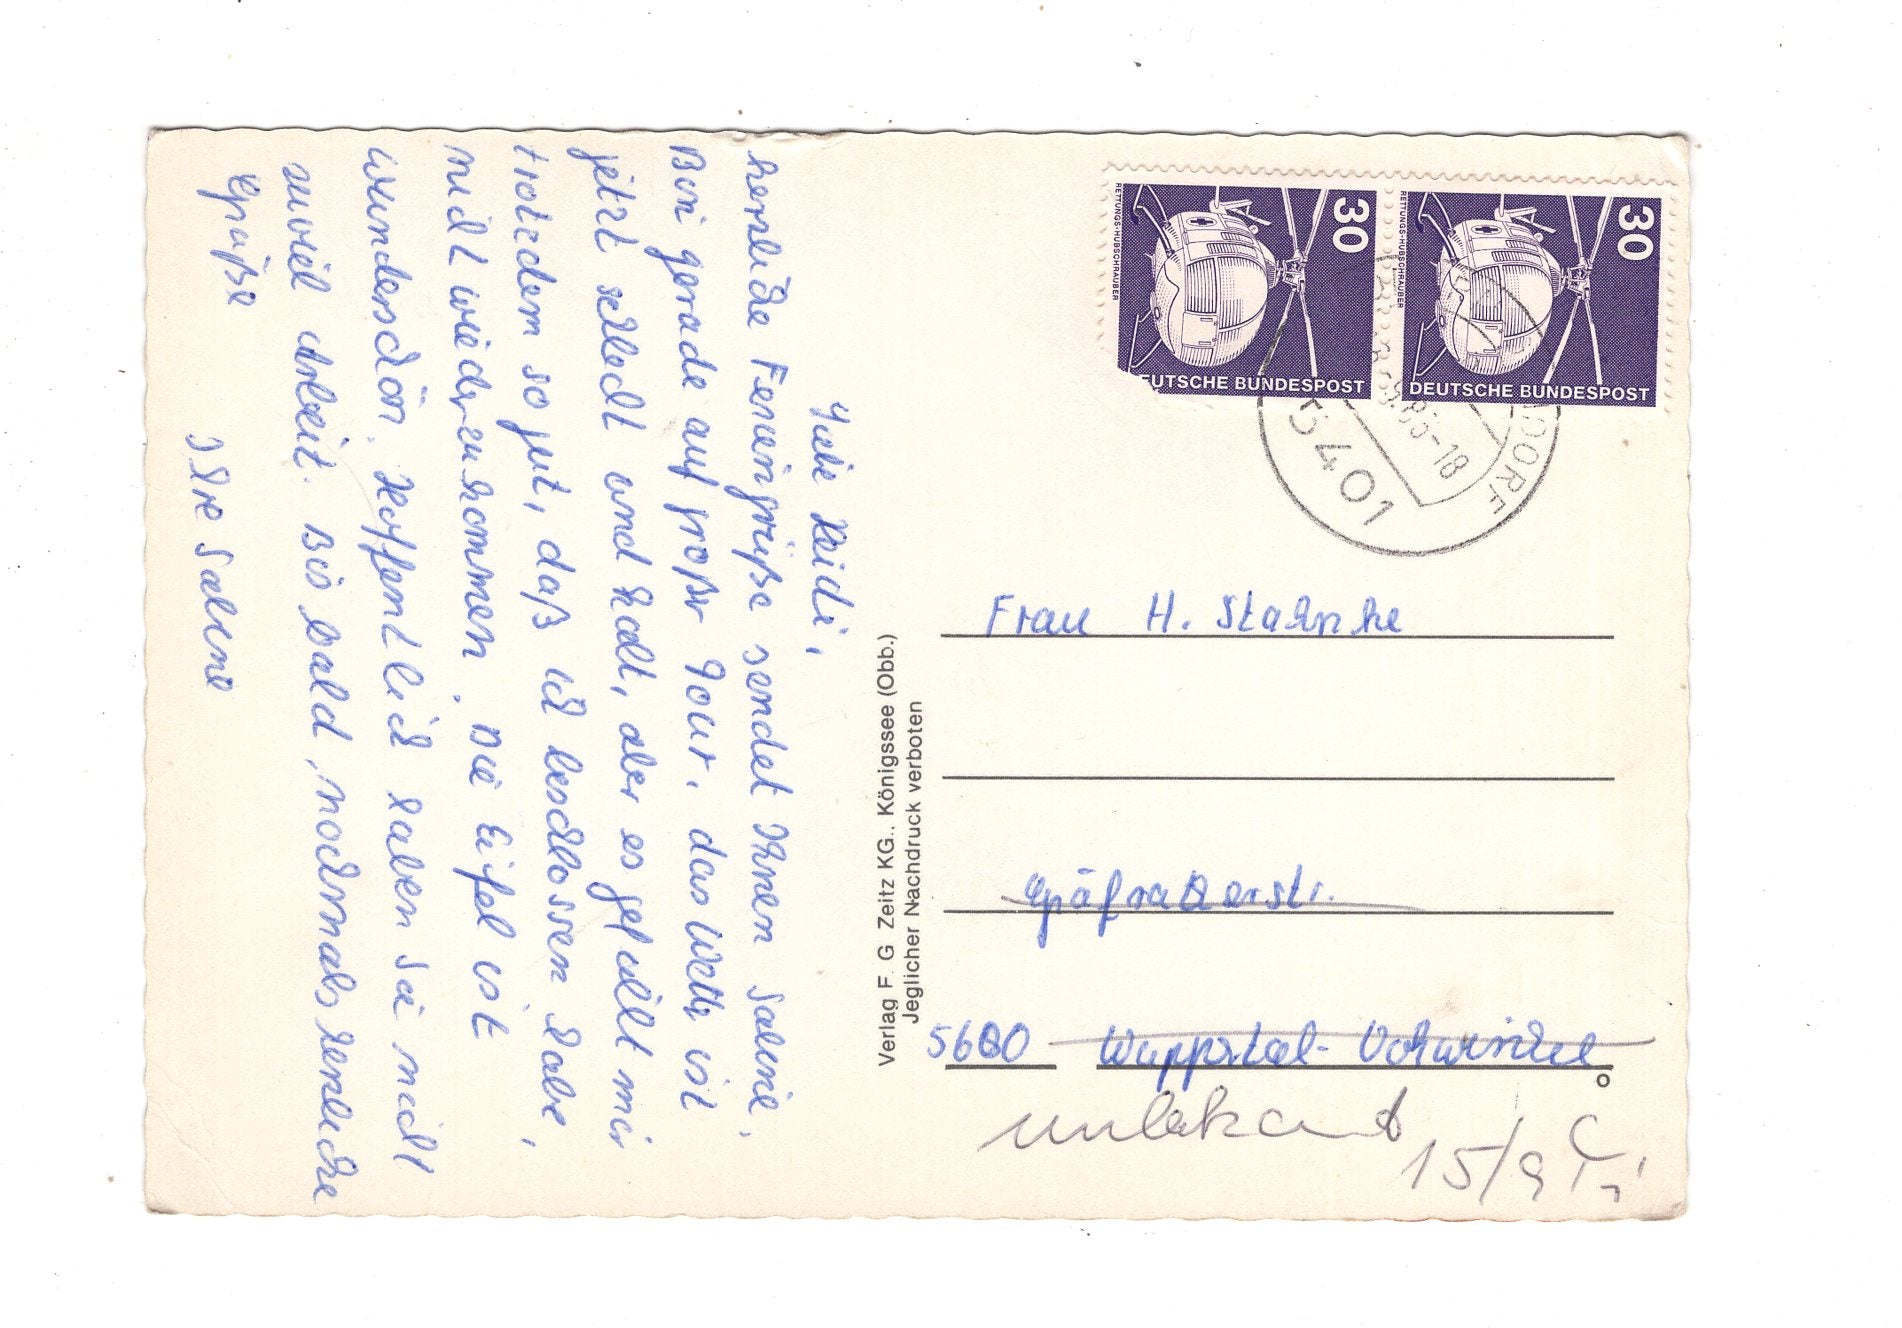 Liebe Heidi,
herzliche Feriengrüße sendet Ihnen Sabine.
Bin gerade auf großer Tour. das Wetter ist
jetzt schlecht und kalt, aber es gefällt mir
trotzdem so gut, daß ich beschlossen habe,
nicht wiederzukommen. Die Eifel ist
wunderschön. Hoffentlich haben Sie nicht
zuviel Arbeit. Bis bald, nochmals herzliche
Grüße
Ihre Sabine
Verlag F. G. Zeitz KG., Königssee (Obb.)
Jeglicher Nachdruck verboten
30
RETTUNGS-HUBSCHRAUBER
EUTSCHE BUNDESPOST
30
RETTUNGS-HUBSCHRAUBER
DEUTSCHE BUNDESPOST
5401
-18
DORF
Frau H. Stahnke
Gräfratherstr.
5600 Wuppertal-Vohwinkel
unbekannt
15/9